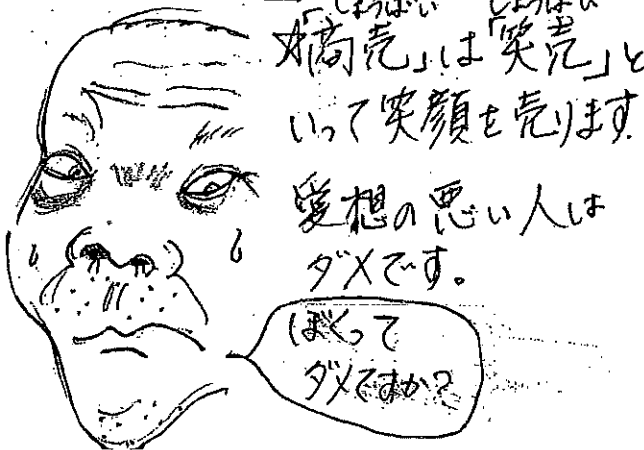 しょうばい しょうばい
☆「商売」は「笑売」と
いって笑顔を売ります。
愛想の悪い人は
ダメです。
ぼくって
ダメですか?